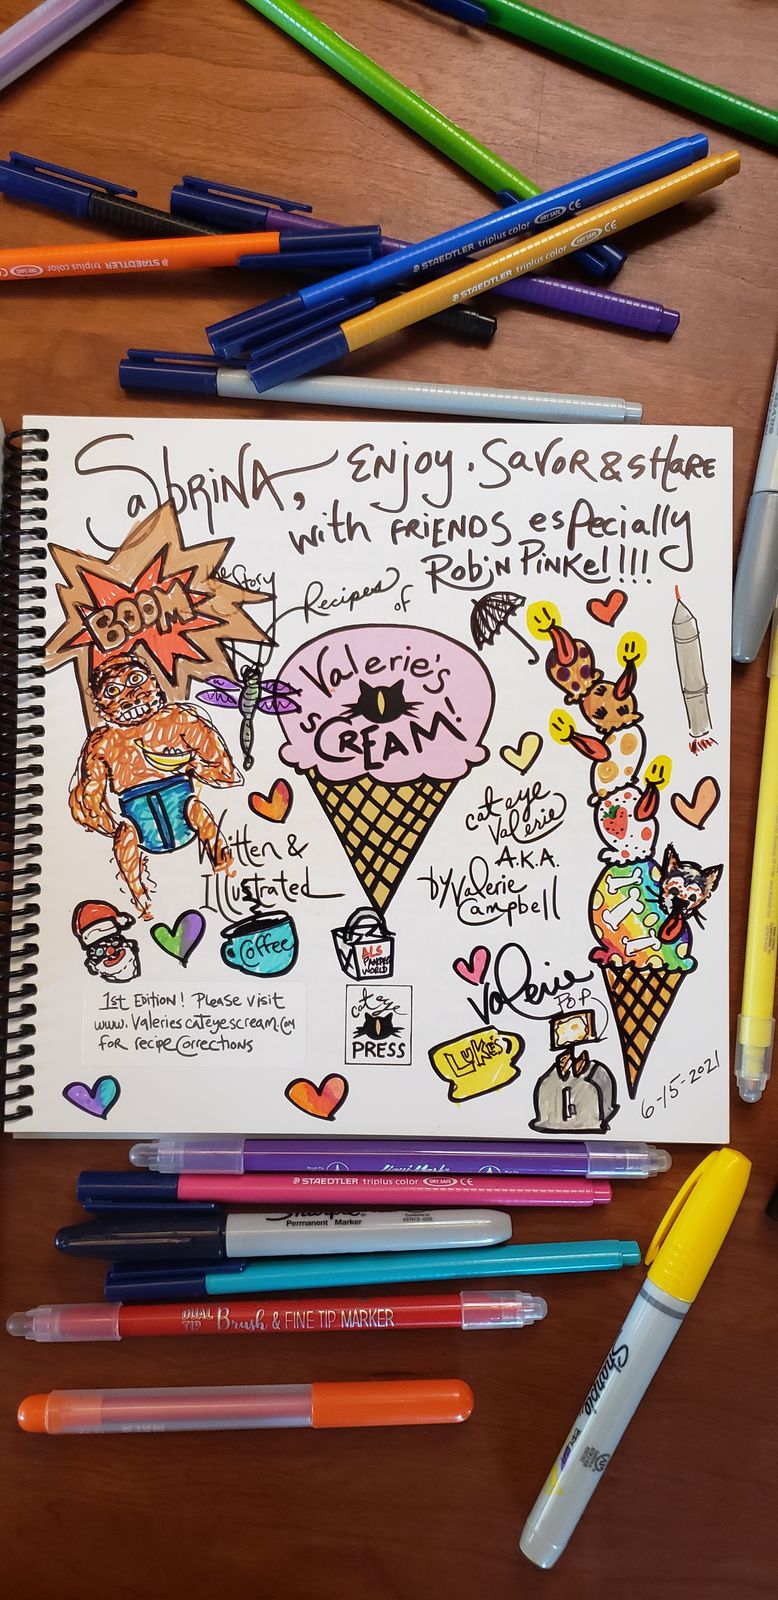 STAEDTLER triplus color DRY SAFE CE
STAEDTLER triplus color DRY SAFE CE
STAEDTLER triplus color
SABRINA, ENJOY, SAVOR & SHARE
with FRIENDS especially
Robin Pinkel!!!!
BOOM
Story
Recipes of
Valerie's
sCREAM!
cat eye
Valerie
A.K.A.
by Valerie
Campbell
Written &
Illustrated
Coffee
ALS
PAMPERED
WORLD
Valerie
POP
1st Edition! Please visit
www.Valeriescateyescream.com
for recipe Corrections
cat eye
PRESS
LUKE'S
6-15-2021
STAEDTLER triplus color DRY SAFE CE
Sharpie
Permanent Marker
DUAL TIP Brush & FINE TIP MARKER
Sharpie